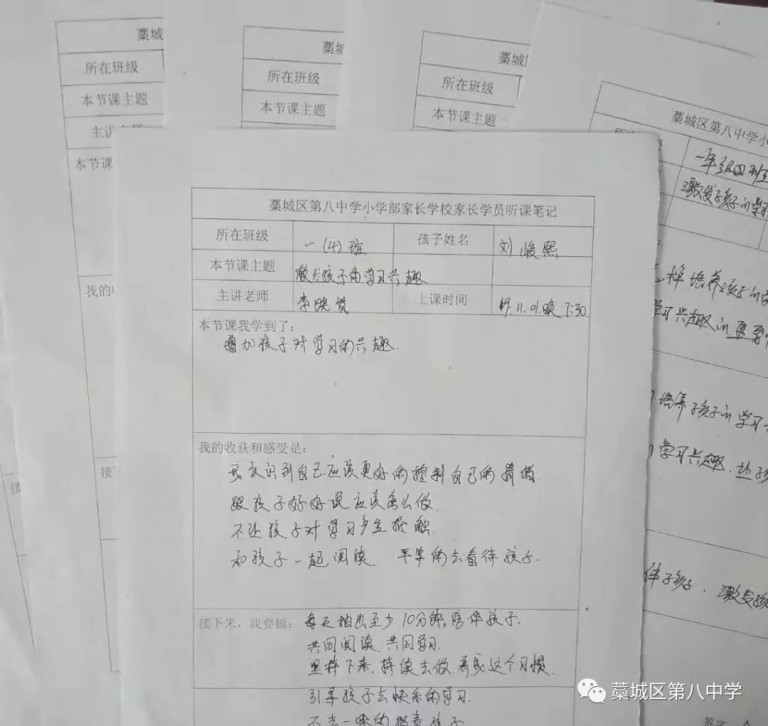 藁城
所在班级
本节课主题
主讲
本节课
我的
接
藁城
所在班级
本节课主题
藁城
所在班级
本节课主题
藁城区第八中学小
一年级四班
激发孩子的学习
培养孩子的
学习兴趣的重要
培养孩子的学习
学习兴趣
伴孩子，激发孩
藁城区第八中学小学部家长学校家长学员听课笔记
所在班级 一（4）班 孩子姓名 刘峻熙
本节课主题 激发孩子的学习兴趣
主讲老师 李晓 上课时间 19.11.01.晚7:30
本节课我学到了：
增加孩子对学习的兴趣.
我的收获和感受是：
意识到自己应该更好的控制自己的情绪
跟孩子好好说应该怎么做.
不让孩子对学习产生抵触
和孩子一起阅读 平等的去看待孩子.
接下来，我要做： 每天抽出至少10分钟,陪伴孩子.
共同阅读,共同学习.
坚持下来,持续去做,养成这个习惯.
引导孩子去快乐的学习.
不去一味的 孩子
藁城区第八中学